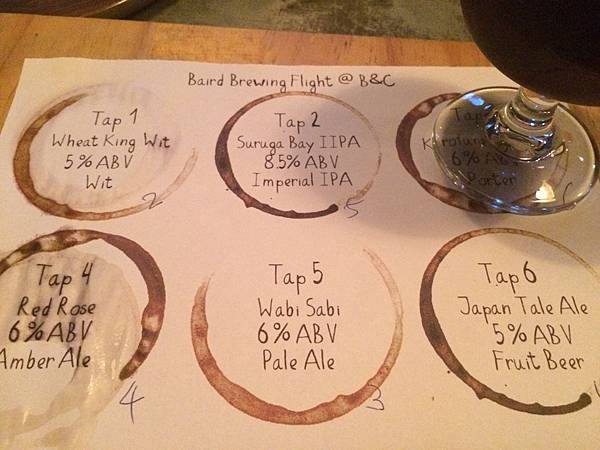 Baird Brewing Flight @ B&C
Tap 1
Wheat King Wit
5% ABV
Wit
2
Tap 2
Suruga Bay IIPA
8.5% ABV
Imperial IPA
5
6% ABV
Porter
Tap 4
Red Rose
6% ABV
Amber Ale
4
Tap 5
Wabi Sabi
6% ABV
Pale Ale
3
Tap 6
Japan Tale Ale
5% ABV
Fruit Beer